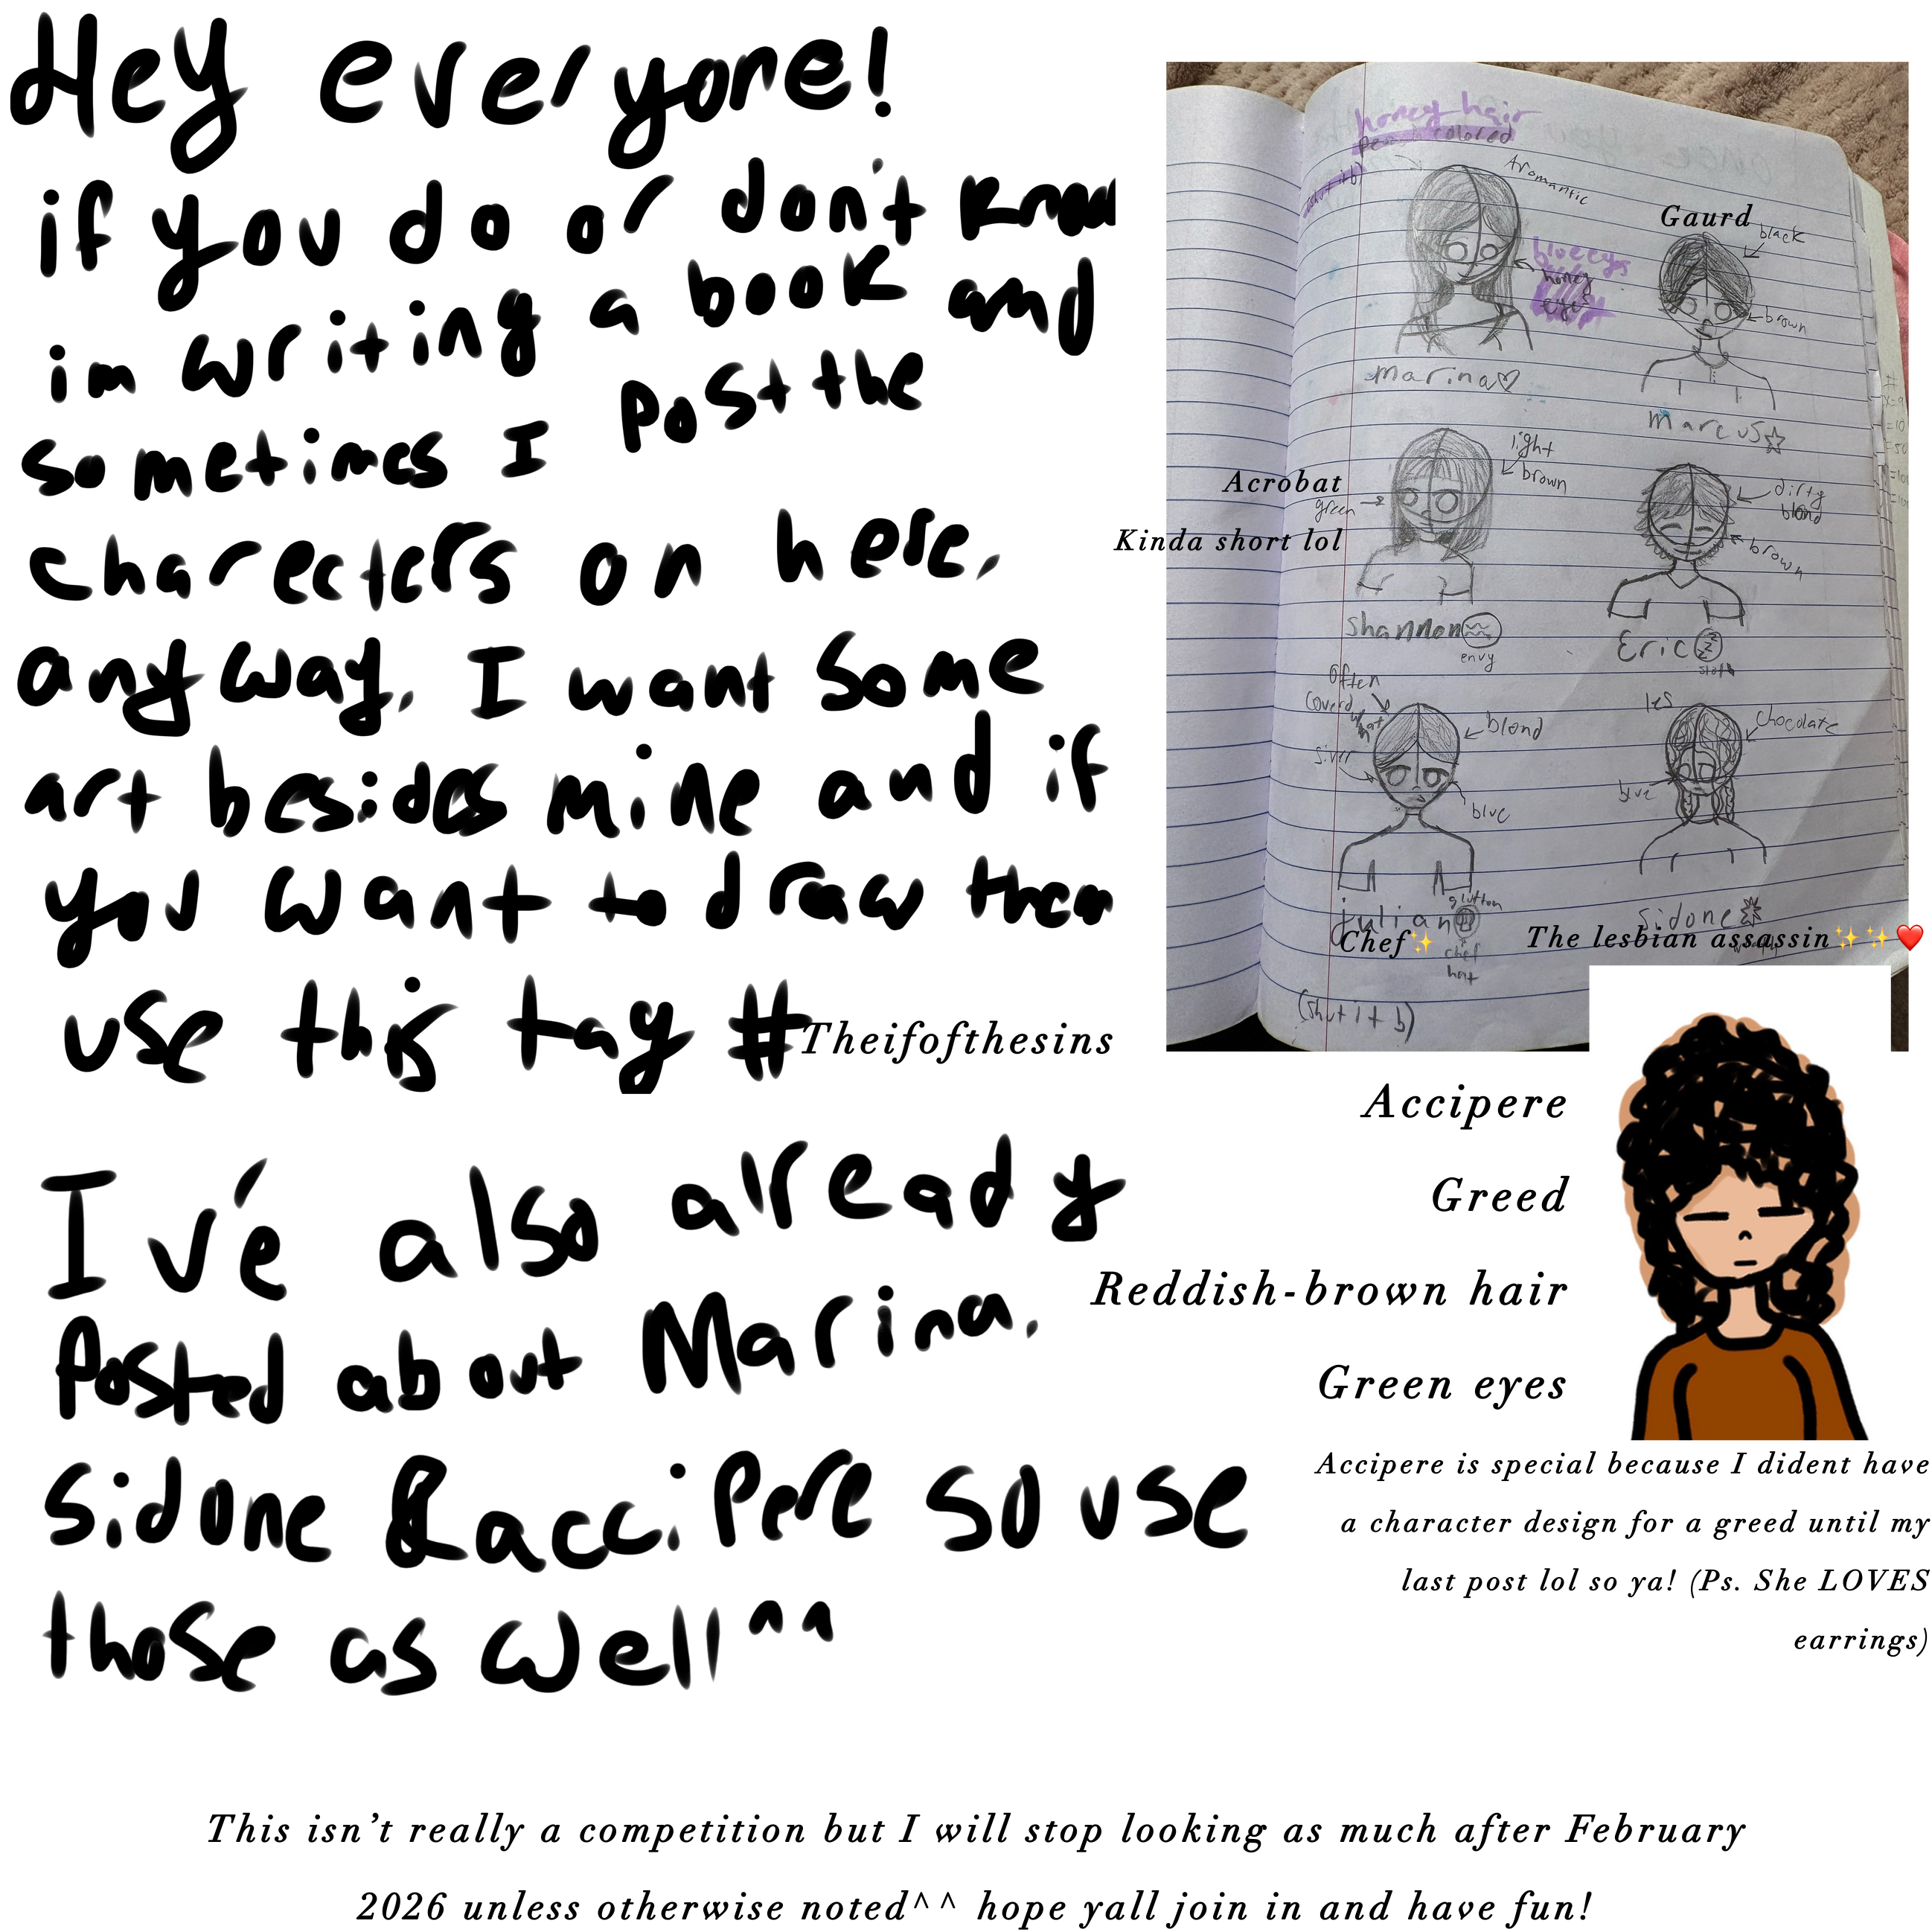 Hey everyone!
if you do or don't know
im writing a book and
sometimes I post the
charecters on here,
anyway, I want some
art besides mine and if
you want to draw them
use this tag #Theifofthesins
I've also already
Posted about Marina,
Sidone & accipere so use
those as well ^^
honey hair
colored
Aromantic
blue eyes
honey
eyes
marina♡
Gaurd
black
brown
marcus☆
Acrobat
Kinda short lol
light
brown
green
shannon
envy
dirty
blond
brown
Eric
sloth
Often
coverd w hat
silver
blond
blue
julian
glutton
Chef✨
chef
hat
les
chocolate
blue
Sidone
The lesbian assassin✨✨❤️
(shut it b)
Accipere
Greed
Reddish-brown hair
Green eyes
Accipere is special because I dident have
a character design for a greed until my
last post lol so ya! (Ps. She LOVES
earrings)
This isn't really a competition but I will stop looking as much after February
2026 unless otherwise noted^^ hope yall join in and have fun!